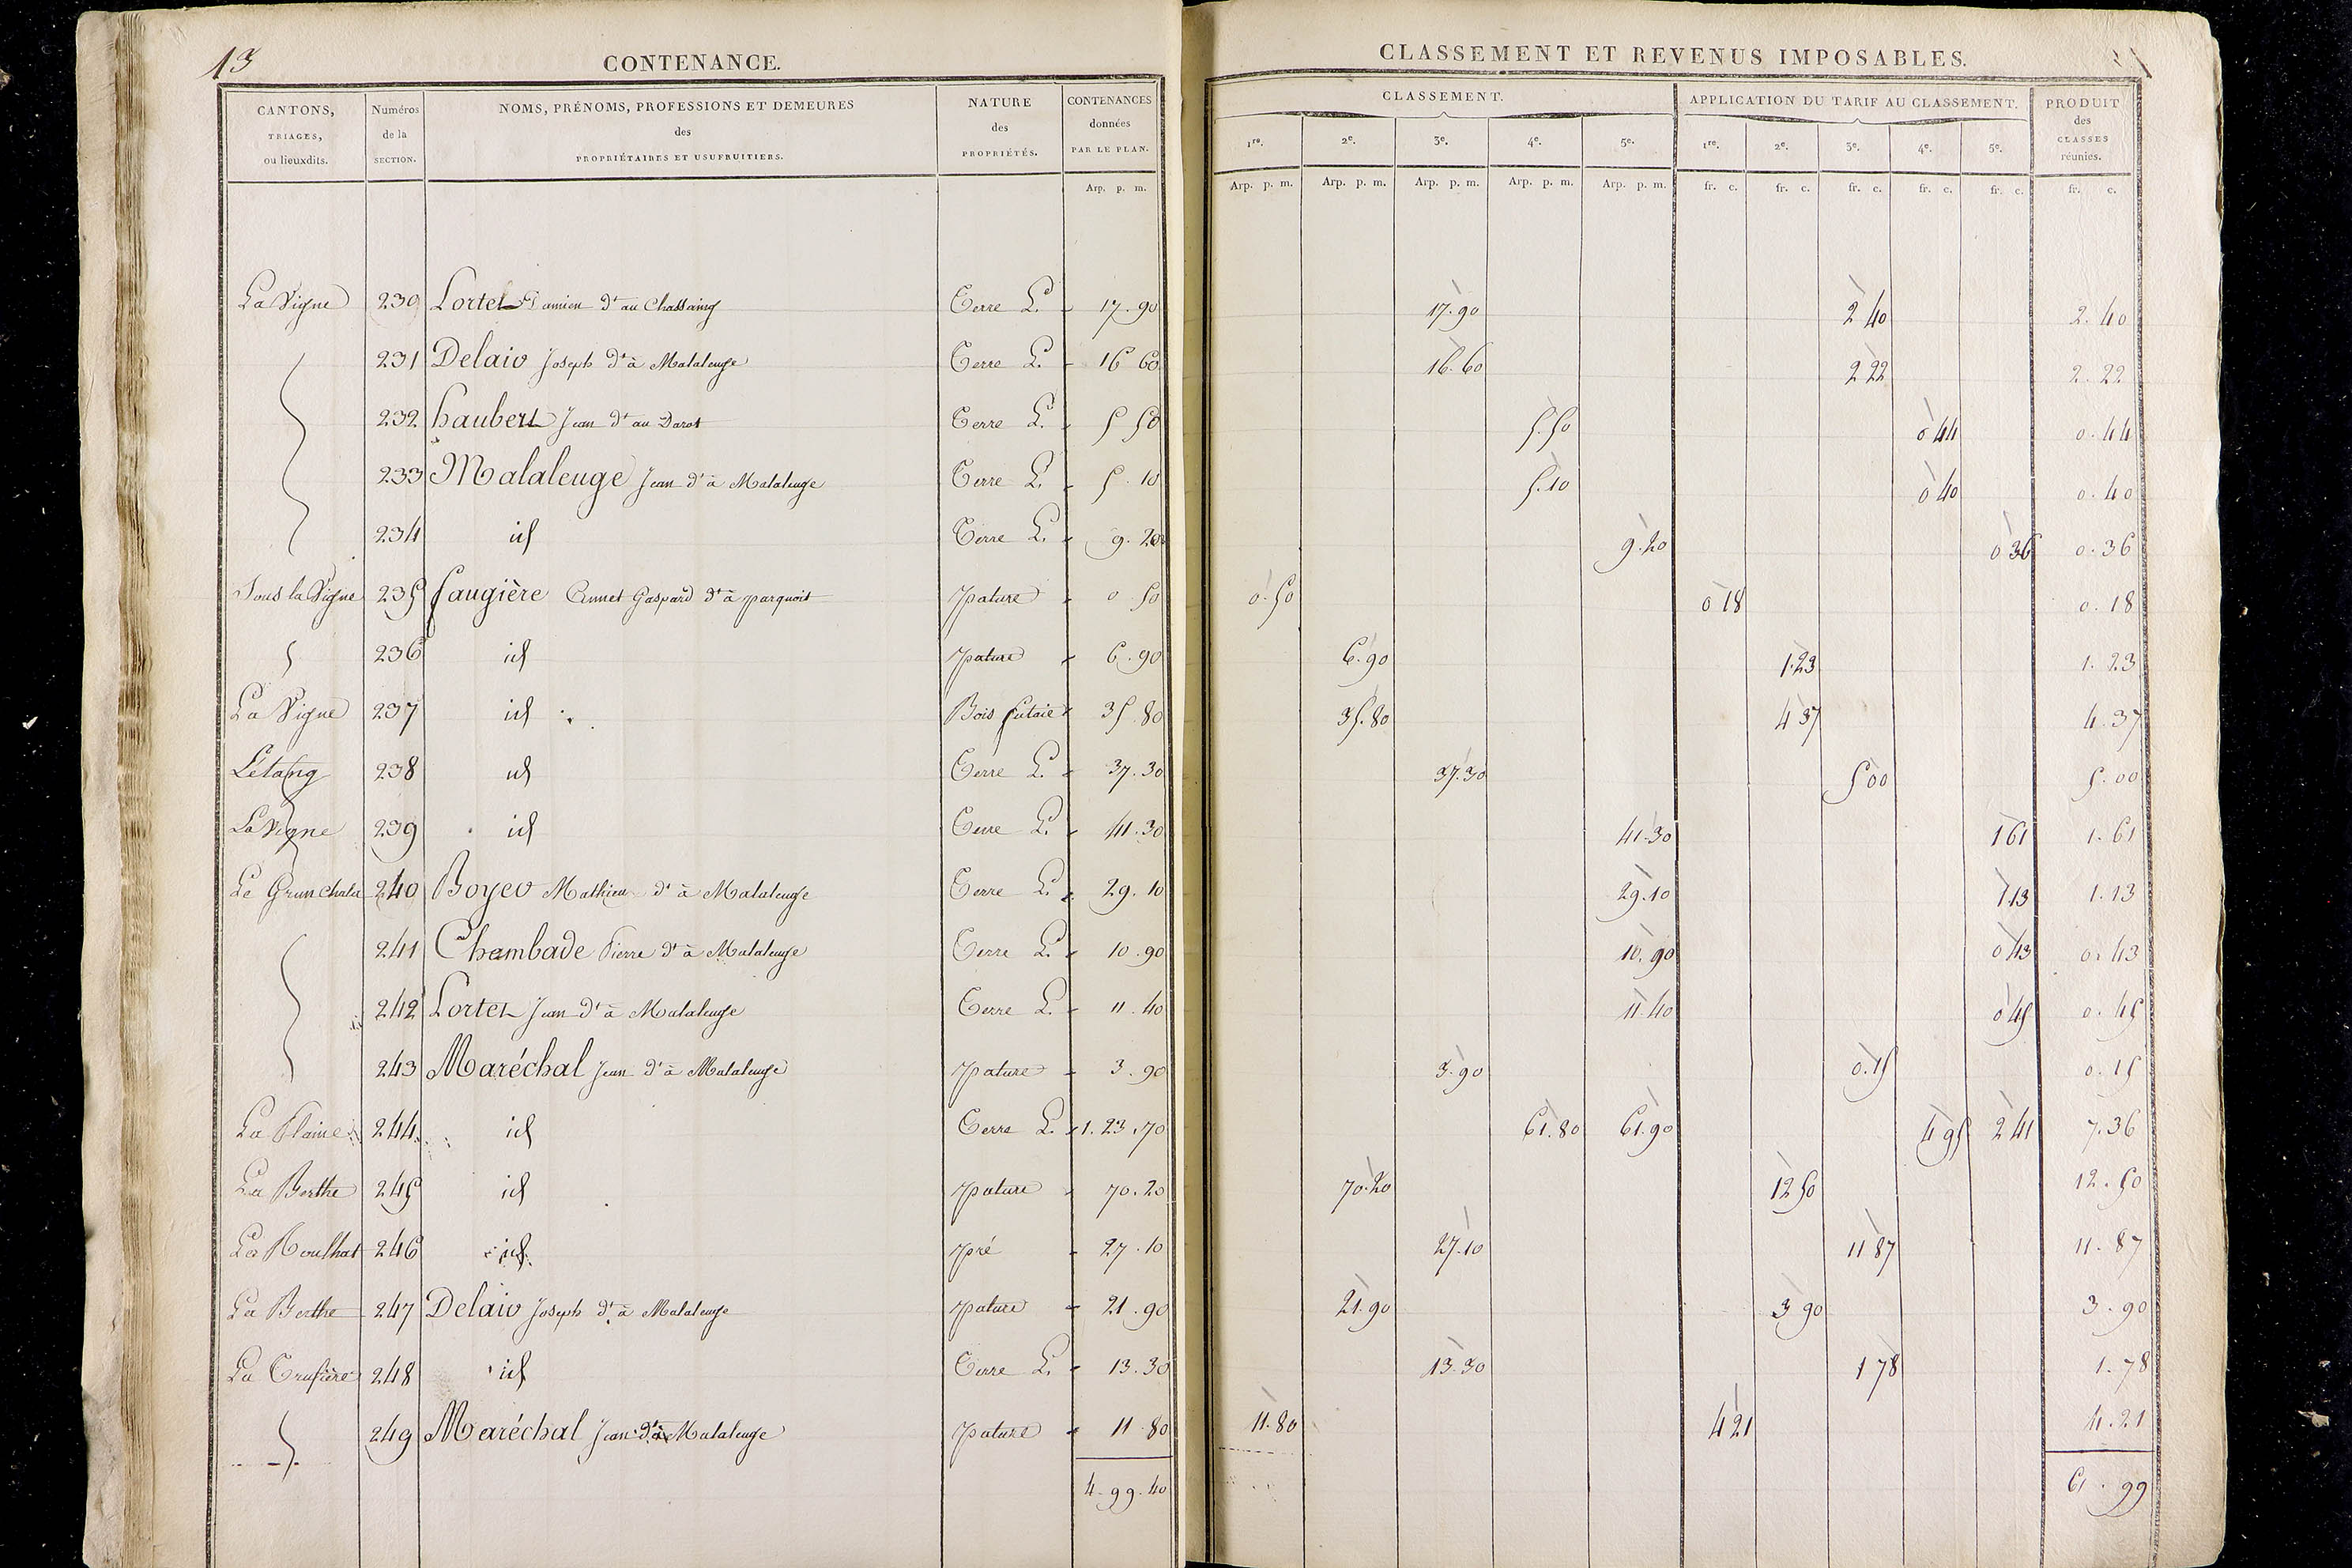 13
CONTENANCE.
CLASSEMENT ET REVENUS IMPOSABLES.
CANTONS, TRIAGES, ou lieuxdits. | Numéros de la SECTION. | NOMS, PRÉNOMS, PROFESSIONS ET DEMEURES des PROPRIÉTAIRES ET USUFRUITIERS. | NATURE des PROPRIÉTÉS. | CONTENANCES données PAR LE PLAN. | CLASSEMENT. | APPLICATION DU TARIF AU CLASSEMENT. | PRODUIT des CLASSES réunies.
1re. 2e. 3e. 4e. 5e. 1re. 2e. 3e. 4e. 5e.
Arp. p. m. Arp. p. m. Arp. p. m. Arp. p. m. Arp. p. m. Arp. p. m. fr. c. fr. c. fr. c. fr. c. fr. c. fr. c.
La Vigne 230 Lortet Damien dt au Chassaing Terre L. 17.90 17.90 2 40 2.40
231 Delair Joseph dt à Malaleuge Terre L. 16 60 16.60 2 22 2.22
232 haubert Jean dt au Darot Terre L. 5 50 5.50 0 44 0.44
233 Malaleuge Jean dt à Malaleuge Terre L. 5.10 5.10 0 40 0.40
234 id Terre L. 9.20 9.20 0 36 0.36
Sous la Vigne 235 faugière Annet Gaspard dt à parquoit pature 0 50 0.50 0 18 0.18
236 id pature 6.90 6.90 1.23 1.23
La Vigne 237 id Bois futaie 35.80 35.80 4 37 4.37
L'étang 238 id Terre L. 37.30 37.30 5 00 5.00
La Vigne 239 id Terre L. 41.30 41.30 1 61 1.61
Le Grun Chata 240 Boyer Mathieu dt à Malaleuge Terre L. 29.10 29.10 1.13 1.13
241 Chambade Pierre dt à Malaleuge Terre L. 10.90 10.90 0 43 0.43
242 Lortet Jean dt à Malaleuge Terre L. 11.40 11.40 0 45 0.45
243 Maréchal Jean dt à Malaleuge pature 3.90 3.90 0.15 0.15
La Plaine 244 id Terre L. 1.23.70 61.80 61.90 4 95 2 41 7.36
La Berthe 245 id pature 70.20 70.20 12 50 12.50
La Roulhat 246 id pré 27.10 27.10 11 87 11.87
La Berthe 247 Delair Joseph dt à Malaleuge pature 21.90 21.90 3 90 3.90
La Trufière 248 id Terre L. 13.30 13.30 1 78 1.78
249 Maréchal Jean dt à Malaleuge pature 11 80 11.80 4 21 4.21
4.99.40 61.99